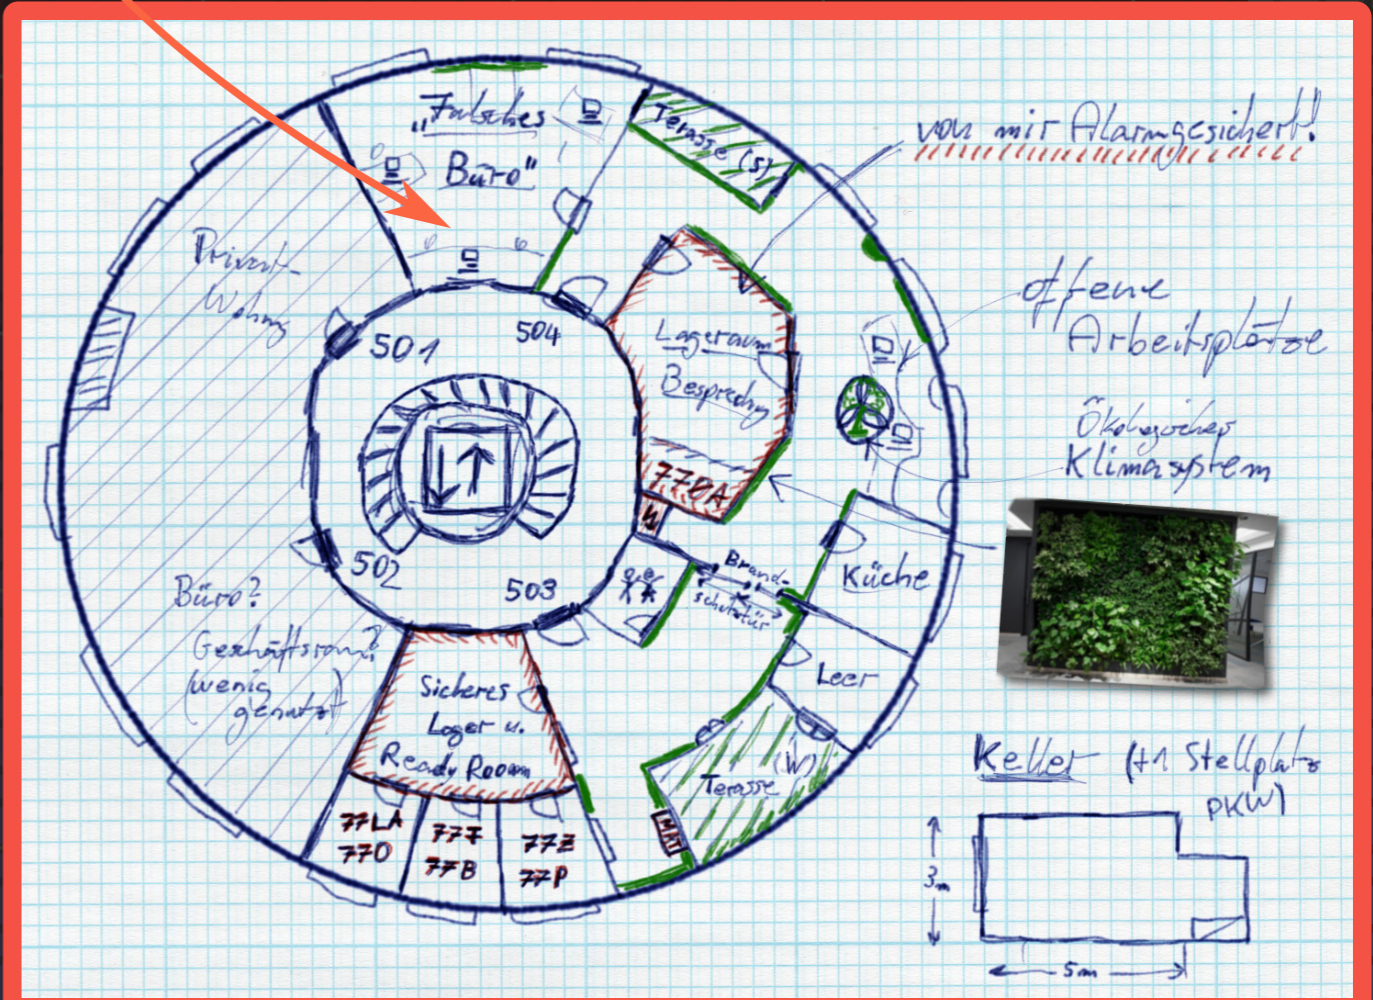 „Falsches
Büro"
Terasse (S)
von mir Alarmgesichert!
Privat-
Wohng
501
504
502
503
Lageraum
Besprechg
770A
offene
Arbeitsplätze
Ökologisches
Klimasystem
Brand-
schutztür
Küche
Leer
Büro?
Geschäftsraum?
(wenig
genutzt)
Sicheres
Lager u.
Ready Room
77LA
77O
77F
77B
77Z
77P
MAT
Terasse
(W)
Keller (+1 Stellplatz
PKW)
3m
5m